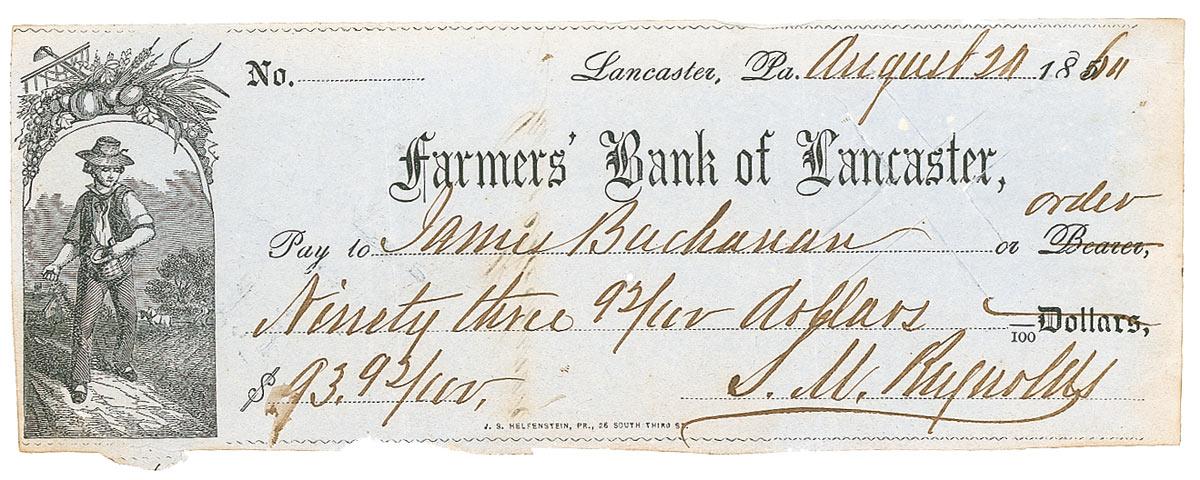 No. Lancaster, Pa. August 20 1860
Farmers' Bank of Lancaster,
order
Pay to James Buchanan or Bearer,
Ninety three 93/100 dollars /100 Dollars,
$ 93.93/100. S. M. Reynolds
J. S. HELFENSTEIN, PR., 26 SOUTH THIRD ST.